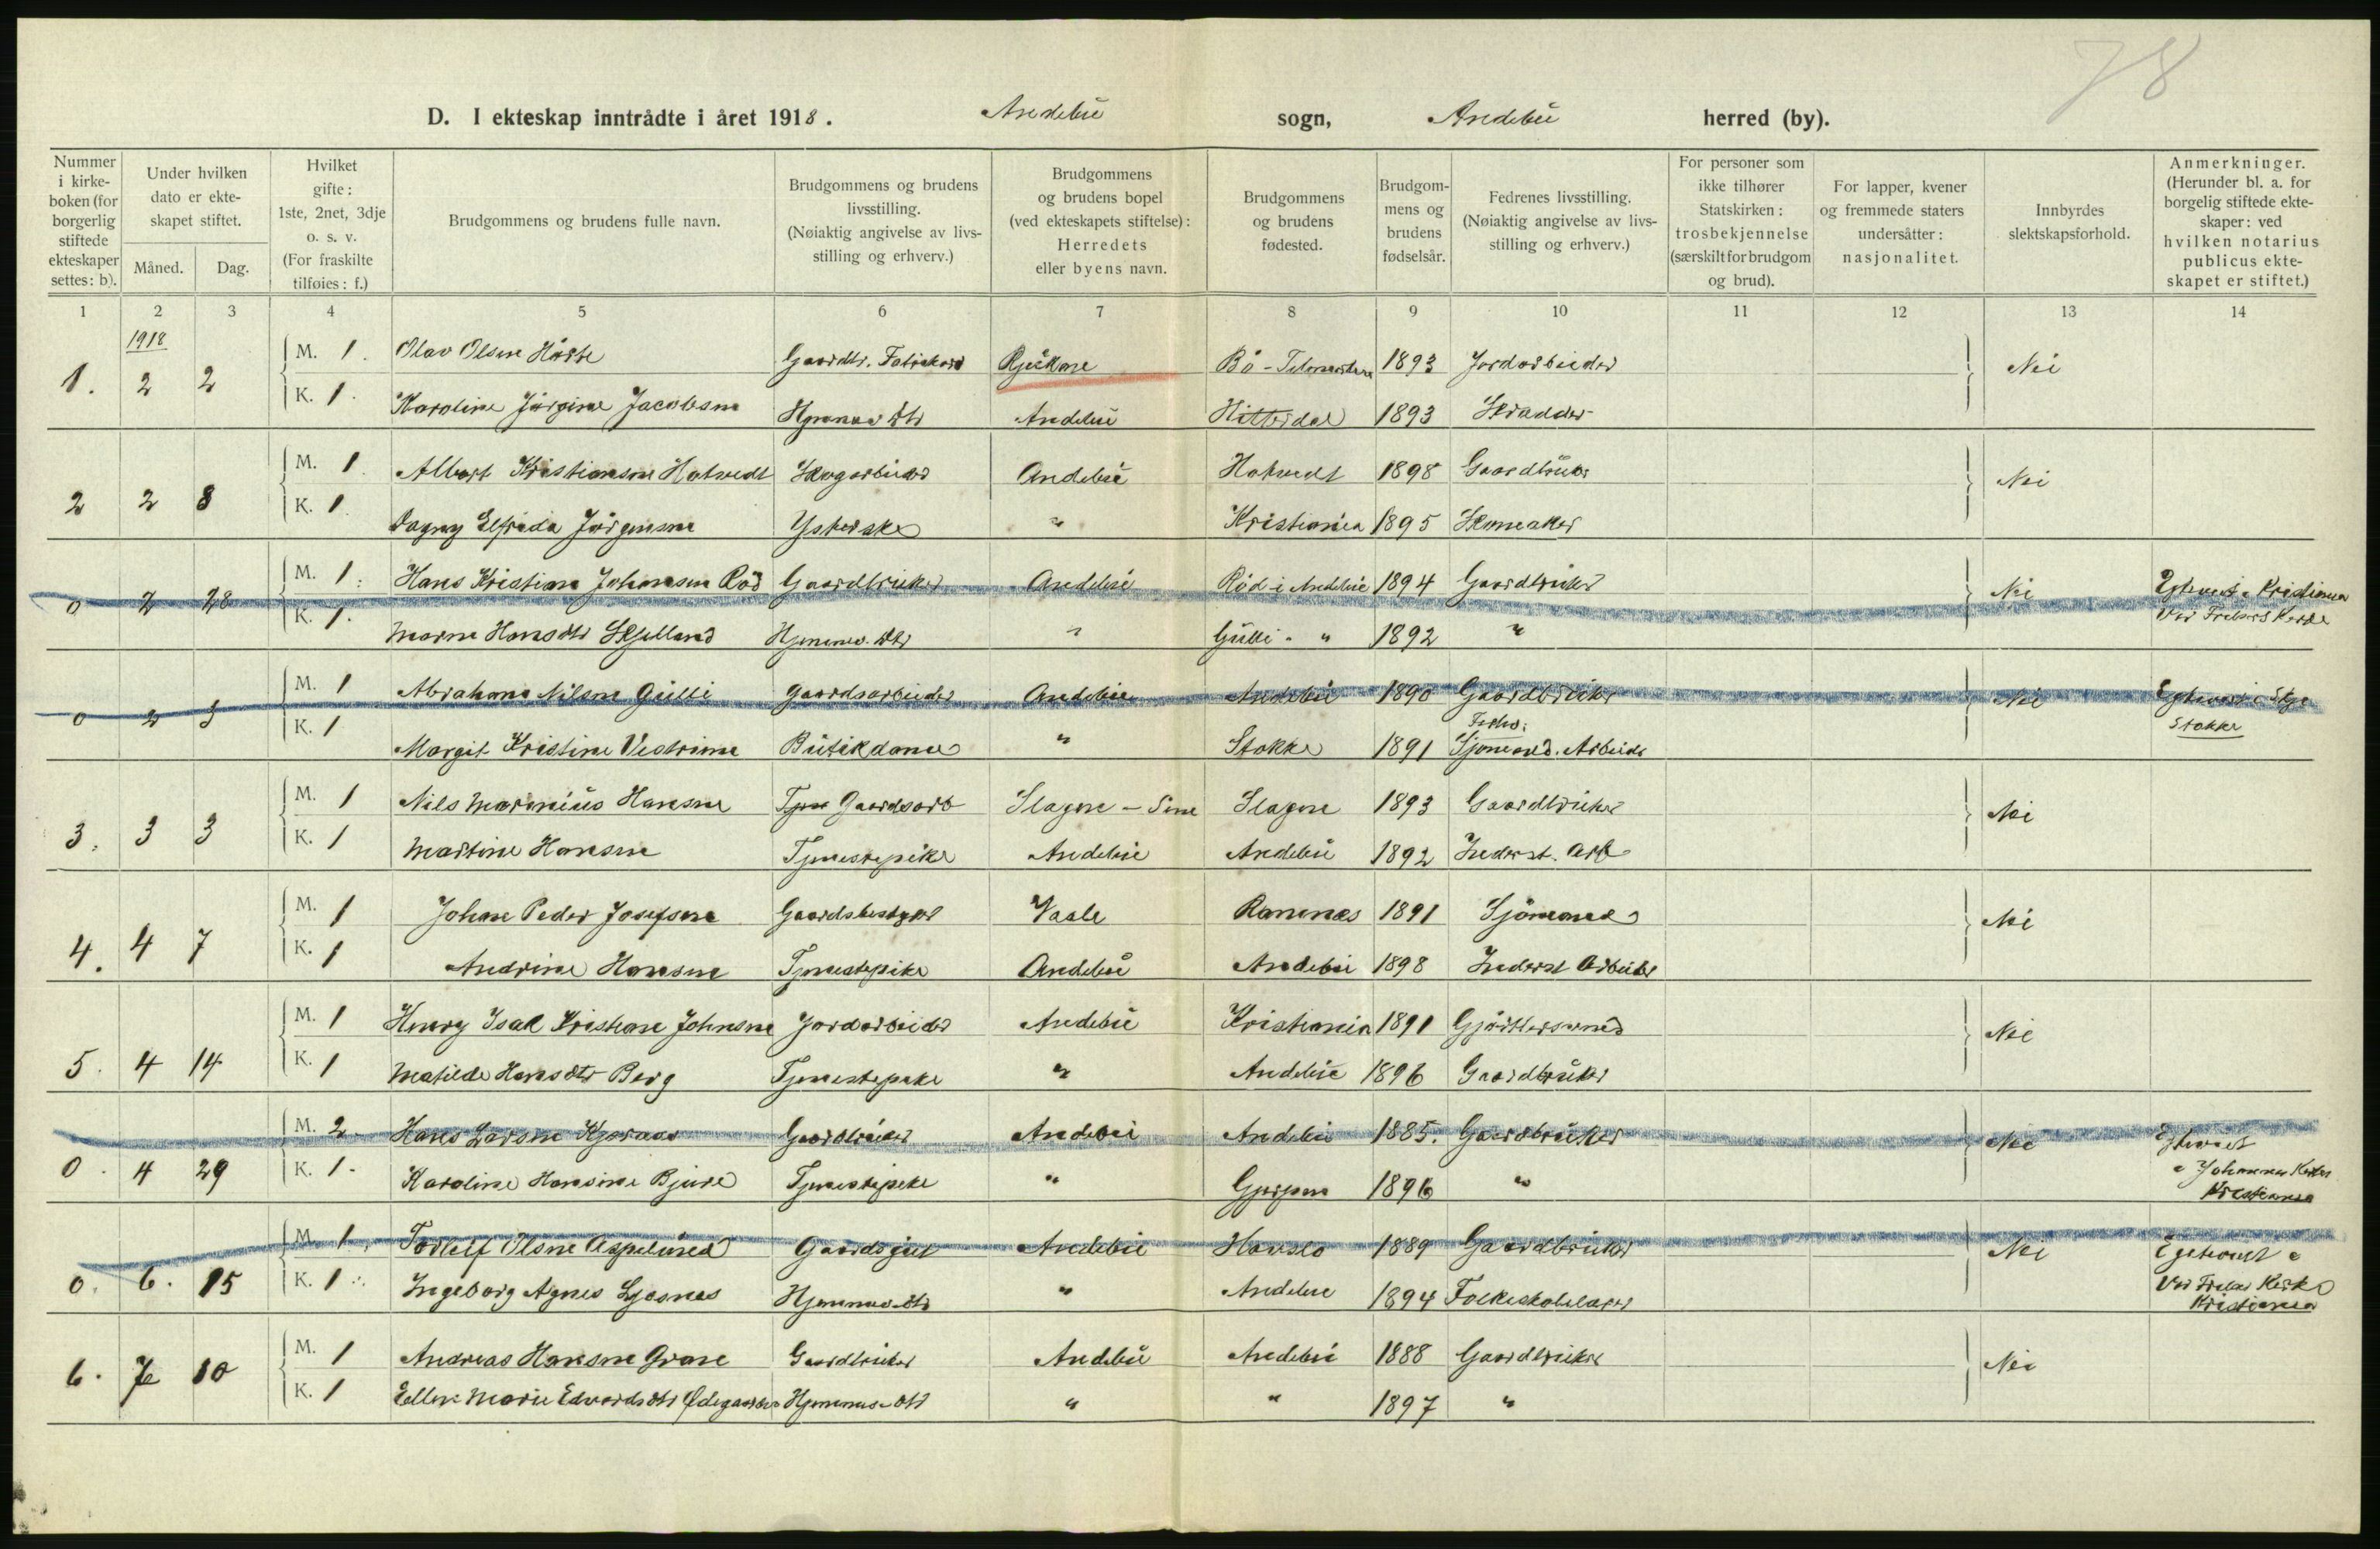 78
D. I ekteskap inntrådte i året 1918. Andebu sogn, Andebu herred (by).
Nummer i kirkeboken (for borgerlig stiftede ekteskaper settes: b).
Under hvilken dato er ekteskapet stiftet.
Måned. Dag.
Hvilket gifte: 1ste, 2net, 3dje o. s. v. (For fraskilte tilføies: f.)
Brudgommens og brudens fulle navn.
Brudgommens og brudens livsstilling. (Nøiaktig angivelse av livsstilling og erhverv.)
Brudgommens og brudens bopel (ved ekteskapets stiftelse): Herredets eller byens navn.
Brudgommens og brudens fødested.
Brudgommens og brudens fødselsår.
Fedrenes livsstilling. (Nøiaktig angivelse av livsstilling og erhverv.)
For personer som ikke tilhører Statskirken: trosbekjennelse (særskilt for brudgom og brud).
For lapper, kvener og fremmede staters undersåtter: nasjonalitet.
Innbyrdes slektskapsforhold.
Anmerkninger. (Herunder bl. a. for borgelig stiftede ekteskaper: ved hvilken notarius publicus ekteskapet er stiftet.)
1 2 3 4 5 6 7 8 9 10 11 12 13 14
1918
1. 2 2 M. 1. Olav Olsen Rjukan Bö - Telemarken 1893 Jordarbeider Nei
K. 1. Karoline Jörgine Jacobsen Andebu Hitterdal 1893 Skradder
2 2 8 M. 1. Albert Kristiansen Hotvedt Skogarbeider Andebu Hotvedt 1898 Gaardbruker Nei
K. 1. Dagny Elfrida Jörgensen Ysterske " Kristiania 1895 Skomaker
0 2 28 M. 1. Hans Kristian Johansen Röd Gaardbruker Andebu Röd i Andebu 1894 Gaardbruker Nei Egteviet i Kristiania
K. 1. Marn Hansdtr Skjelland Hjemmev. dtr " Gulli " " 1892 " Vor Frelsers Kirke
0 2 3 M. 1 Abraham Nilsen Gulli Gaardsarbeider Andebu Andebu 1890 Gaardbruker Nei
K. 1 Margit Kristine Vestrum Butikdame " Stokke 1891 Sjömand. Arbeider Stokke
3. 3 3 M. 1 Nils Marinius Hansen Gaardsarb Slagen - Sem Slagen 1893 Gaardbruker Nei
K. 1 Martine Hansen Tjenestepike Andebu Andebu 1892 Inderst. Arb
4. 4 7 M. 1 Johan Peder Josefsen Gaardsbestyrer Vaale Ramnes 1891 Sjömand Nei
K. 1 Andrine Hansen Tjenestepike Andebu Andebu 1898 Inderst Arbeider
5. 4 14 M. 1 Henry Isak Kristian Johnsen Jordarbeider Andebu Kristiania 1891 Nei
K. 1 Matilde Hansdtr Berg Tjenestepike " Andebu 1896 Gaardbruker
0. 4 29 M. 2. Hans Larsen Gaardbruker Andebu Andebu 1885. Gaardbruker Nei Egteviet
K. 1. Karoline Hansine Bjure Tjenestepike " Gjerpen 1896 " i Johannes Kirken
Kristiania
0. 6. 15 M. 1. Torleif Olsen Aspelund Gaardsgut Andebu Hafslo 1889 Gaardbruker Nei Egteviet i
K. 1. Ingeborg Agnes Hjemmev. dtr " Andebu 1894 Folkeskolelærer Vor Frelser Kirke
Kristiania
6. 7 10 M. 1 Andreas Hansen Gran Gaardbruker Andebu Andebu 1888 Gaardbruker Nei
K. 1 Ellen Marie Edvardsdtr Ødegaarden Hjemmev. dtr " " 1897 "